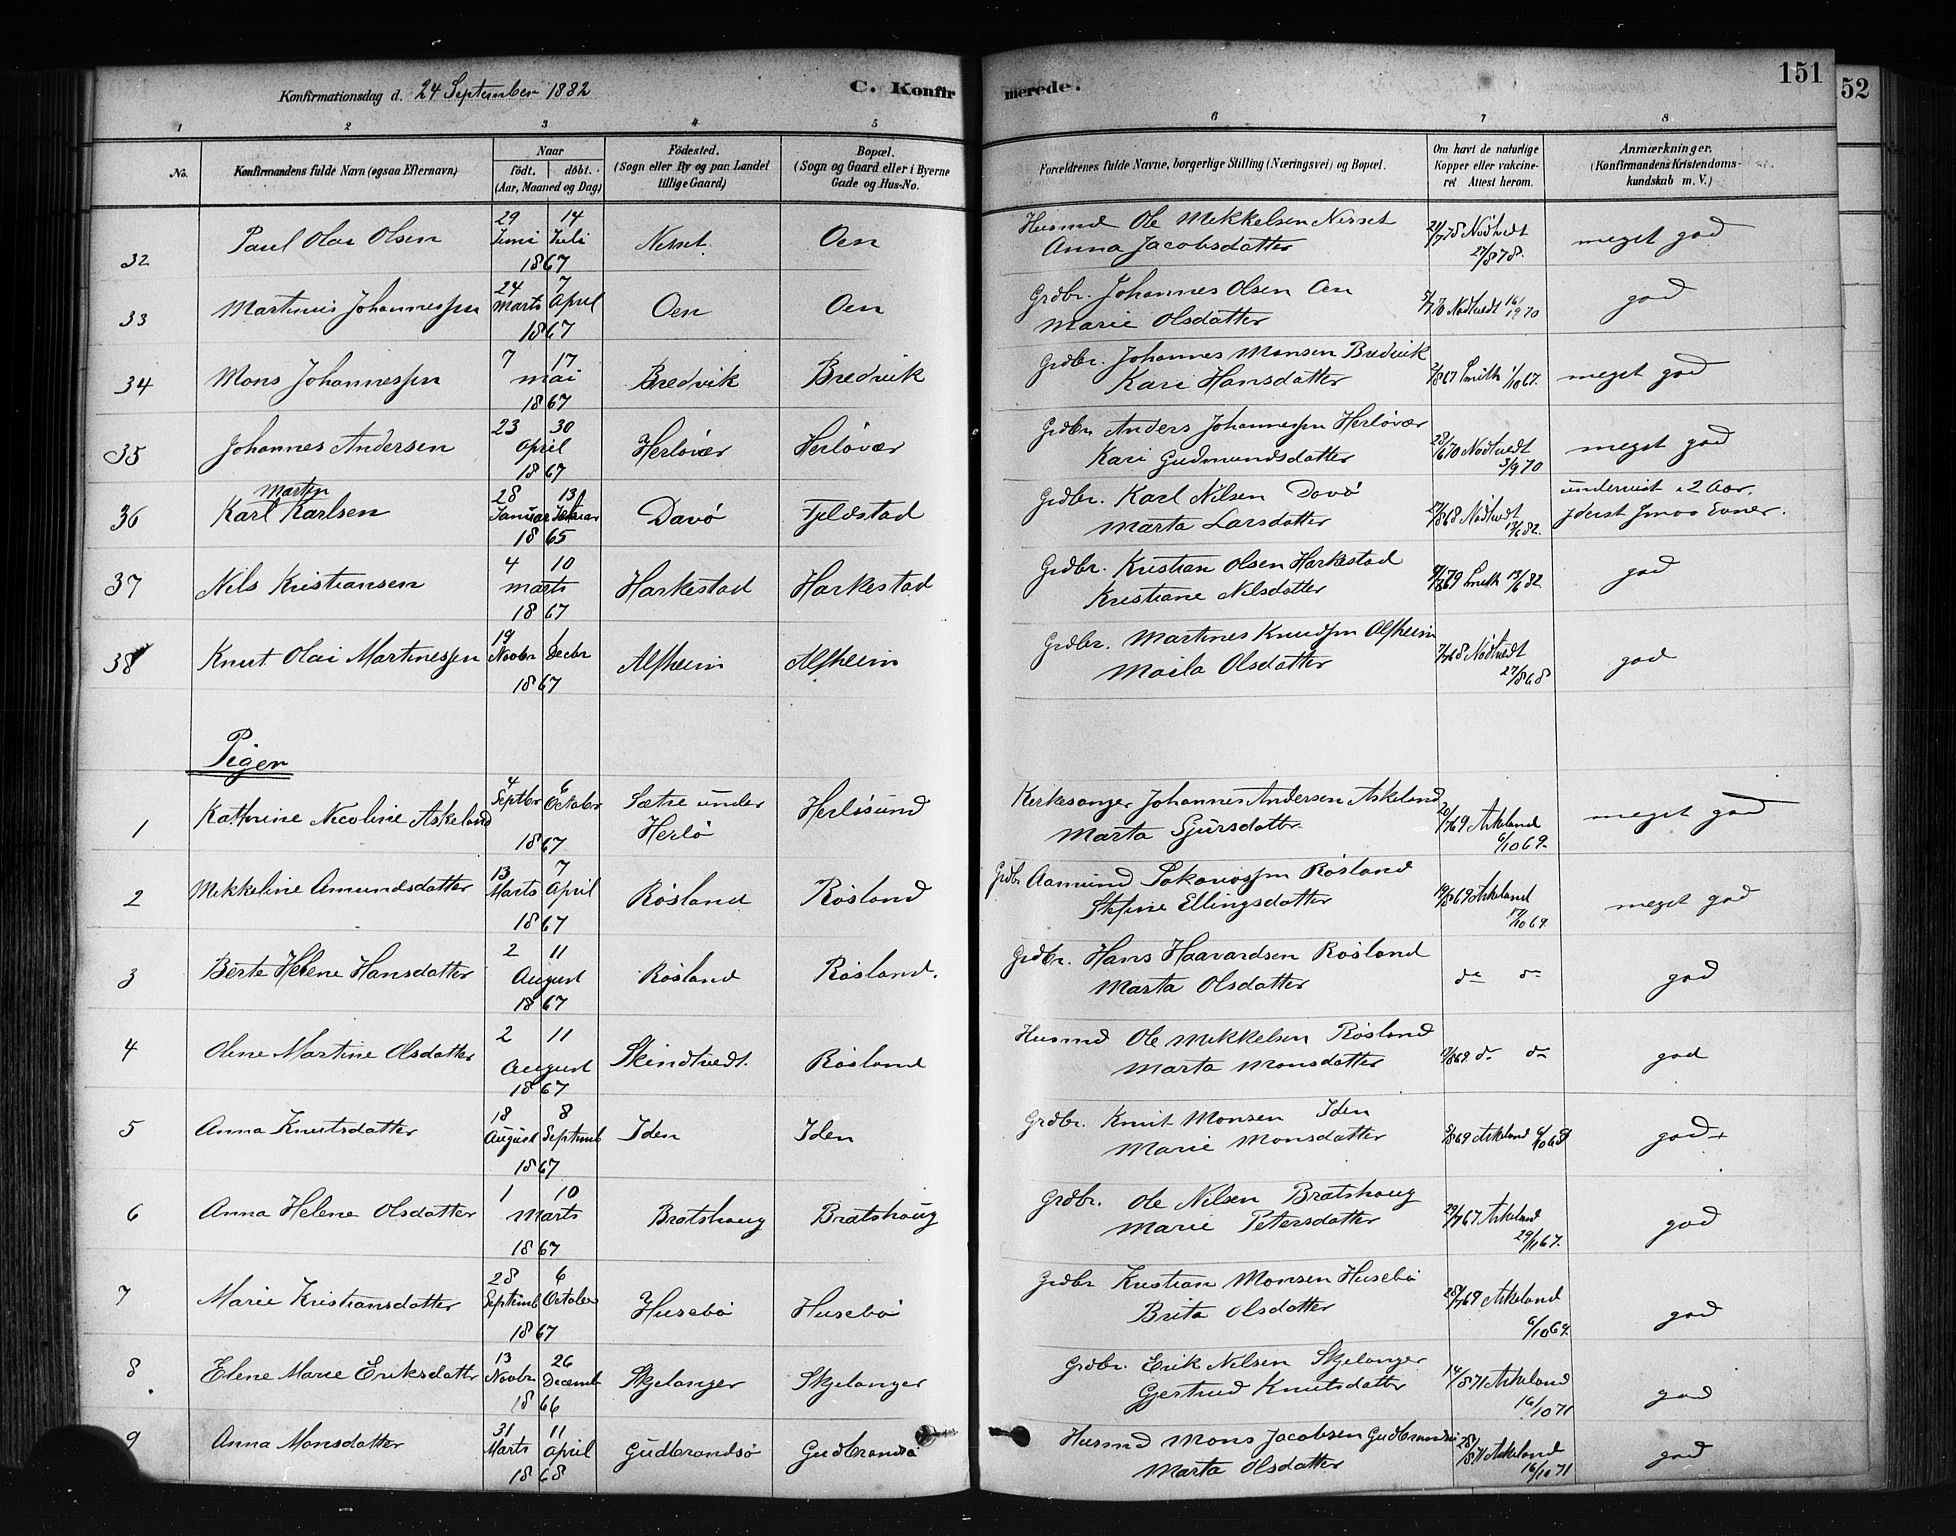 Konfirmationsdag d. 24 September 1882
C. Konfirmerede.
151
52
1 2 3 4 5 6 7 8
No.
Konfirmandens fulde Navn (ogsaa Efternavn)
Naar
født. døbt.
(Aar, Maaned og Dag)
Fødested.
(Sogn eller By og paa Landet
tillige Gaard)
Bopæl.
(Sogn og Gaard eller i Byerne
Gade og Hus-No.
Forældrenes fulde Navne, borgerlige Stilling (Næringsvei) og Bopæl.
Om havt de naturlige
Kopper eller vakcine-
ret Attest herom.
Anmærkninger.
(Konfirmandens Kristendoms-
kundskab m. V.)
32 Paul Olai Olsen 29 Juni 14 Juli 1867 Nesset Oen Husmd Ole Mikkelsen Nesset
Anna Jacobsdatter 24/7 78 Nødtvedt 27/8 78. meget god
33 Martinus Johannessen 24 Marts 7 April 1867 Oen Oen Grdbr. Johannes Olsen Oen
Marie Olsdatter Nødtvedt god
34 Mons Johannessen 7 17 mai 1867 Bredvik Bredvik Grdbr. Johannes Monsen Bredvik
Kari Hansdatter 2/8 67 Smith 1/10 67. meget god
35 Johannes Andersen 23 30 April 1867 Herløvær Herløvær Grdbr Anders Johannessen Herløvær
Kari Gudmundsdatter 28/6 70 Nødtvedt 3/9 70 meget god
36 Karl Martin Karlsen 28 Januar 13 1865 Davø Fjeldstad Grdbr. Karl Nilsen Davø
Marta Larsdatter 27/8 68 Nødtvedt 13/6 82. undervist i 2 Aar.
yderst smaa Evner.
37 Nils Kristiansen 4 10 marts 1867 Harkestad Harkestad Grdbr. Kristian Olsen Harkestad
Kristiane Nilsdatter Smith 13/6 82 god
38 Knut Olai Martinessen 19 Novbr 1 Decbr 1867 Alfheim Alfheim Grdbr. Martines Knudsen Alfheim
Maila Olsdatter 7/7 68 Nødtvedt 27/8 68 god
Piger
1 Kathrine Nicoline Askeland 4 Septbr 6 Octobr 1867 Sætre under
Herlø Herløsund Kirkesanger Johannes Andersen Askeland
Marta Sjursdattr 20/7 69 Askeland 6/10 69. meget god
2 Mikkeline Amundsdatter 13 Marts 7 April 1867 Røsland Røsland Grdbr Aamund Røsland
Stefine Ellingsdatter 19/8 69 Askeland 17/10 69. meget god
3 Berte Helene Hansdatter 2 11 August 1867 Røsland Røsland. Grdbr. Hans Haavardsen Røsland
Marta Olsdatter do do god
4 Olene Martine Olsdatter 2 11 August 1867 Skindtvedt. Røsland Husmd Ole Mikkelsen Røsland
Marta Monsdatter do do god
5 Anna Knutsdatter 18 August 8 Septemb 1867 Iden Iden Grdbr. Knut Monsen Iden
Marie Monsdatter Askeland god
6 Anna Helene Olsdatter 1 10 Marts 1867 Bratshoug Bratshoug Grdbr. Ole Nilsen Bratshoug
Marie Petersdatter 29/7 67 Askeland 29/11 67. god
7 Marie Kristiansdatter 28 Septemb 6 October 1867 Husebø Husebø Grdbr Kristian Monsen Husebø
Brita Olsdatter 28/7 69 Askeland 6/10 69. god
8 Elene Marie Eriksdattr 13 Novbr 26 Decemb 1866 Skjelanger Skjelanger Grdbr. Erik Nilsen Skjelanger
Gjertrud Knutsdatter 14/8 71 Askeland 16/10 71 god
9 Anna Monsdatter 31 Marts 11 April 1868 Gudbrandsø Gudbrandsø Husmd Mons Jacobsen Gudbrandsø
Marta Olsdatter Askeland 16/10 71 god